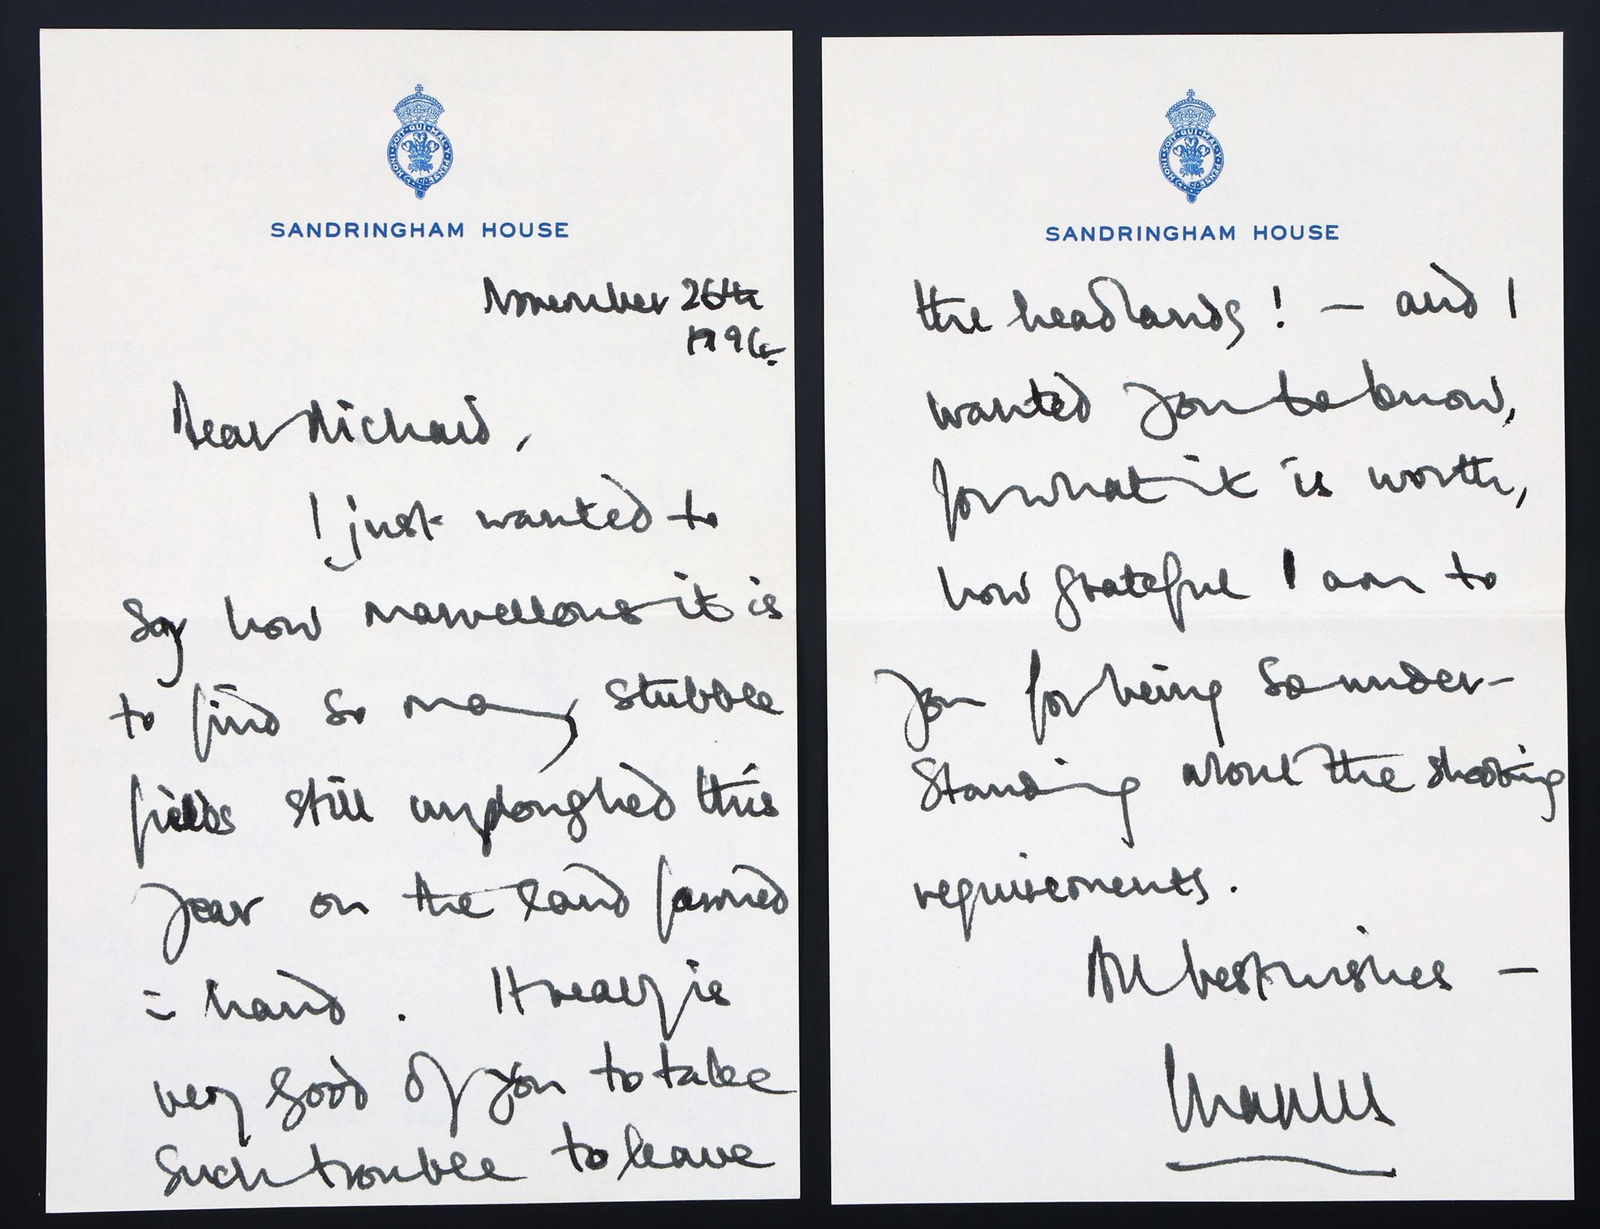 HONI·SOIT·QUI·MAL·Y·PENSE
SANDRINGHAM HOUSE
November 26th
1996.
Dear Richard,
I just wanted to
say how marvellous it is
to find so many stubble
fields still unploughed this
year on the land farmed
in hand. It really is
very good of you to take
such trouble to leave
HONI·SOIT·QUI·MAL·Y·PENSE
SANDRINGHAM HOUSE
the headlands! — and I
wanted you to know,
for what it is worth,
how grateful I am to
you for being so under-
standing about the shooting
requirements.
All best wishes —
Charles